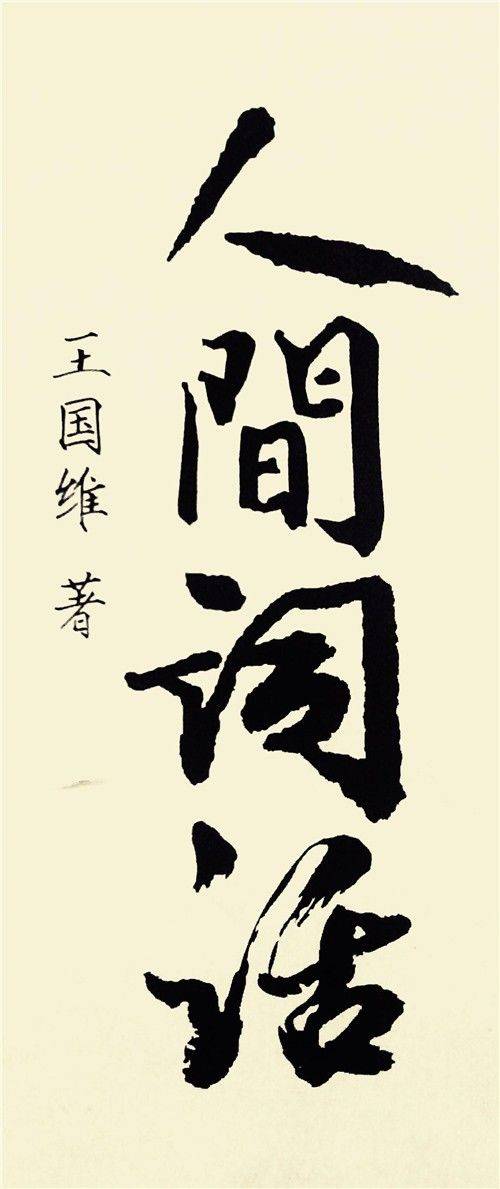 人間词话
王国维 著